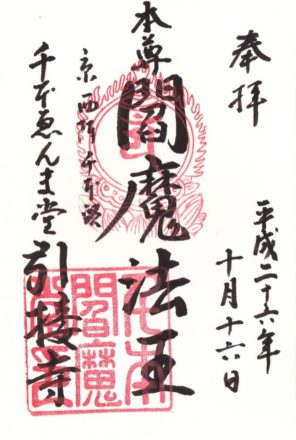 奉拝
平成二十六年
十月十六日
本尊
閻魔法王
京西陣千本頭
千本ゑんま堂引接寺